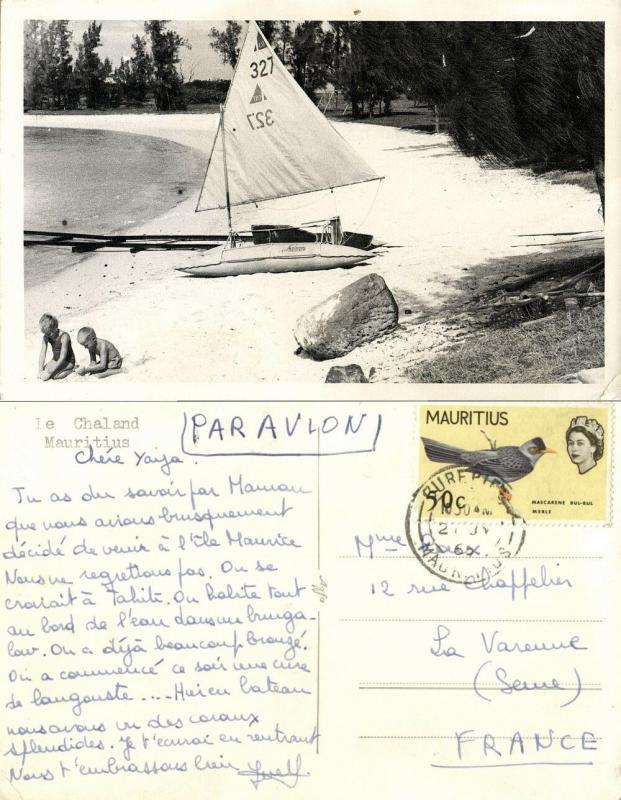 327
327
Le Chaland
Mauritius
PAR AVION
MAURITIUS
50c
MASCARENE BUL-BUL
MERLE
CUREPIPE
10 30 AM
27 JY
65
MAURITIUS
Chère Yaïza.
Tu as du savoir par Maman
que nous avions brusquement
décidé de venir à l'île Maurice
Nous ne regrettons pas. On se
croirait à Tahiti. On habite tout
au bord de l'eau dans un bunga-
low. On a déjà beaucoup bronzé.
On a commencé ce soir une cure
de langouste .... Hier en bateau
nous avons vu des coraux
splendides. Je t'écrirai en rentrant
Nous t'embrassons bien
Mme
12 rue Chappellier
La Varenne
(Seine)
FRANCE